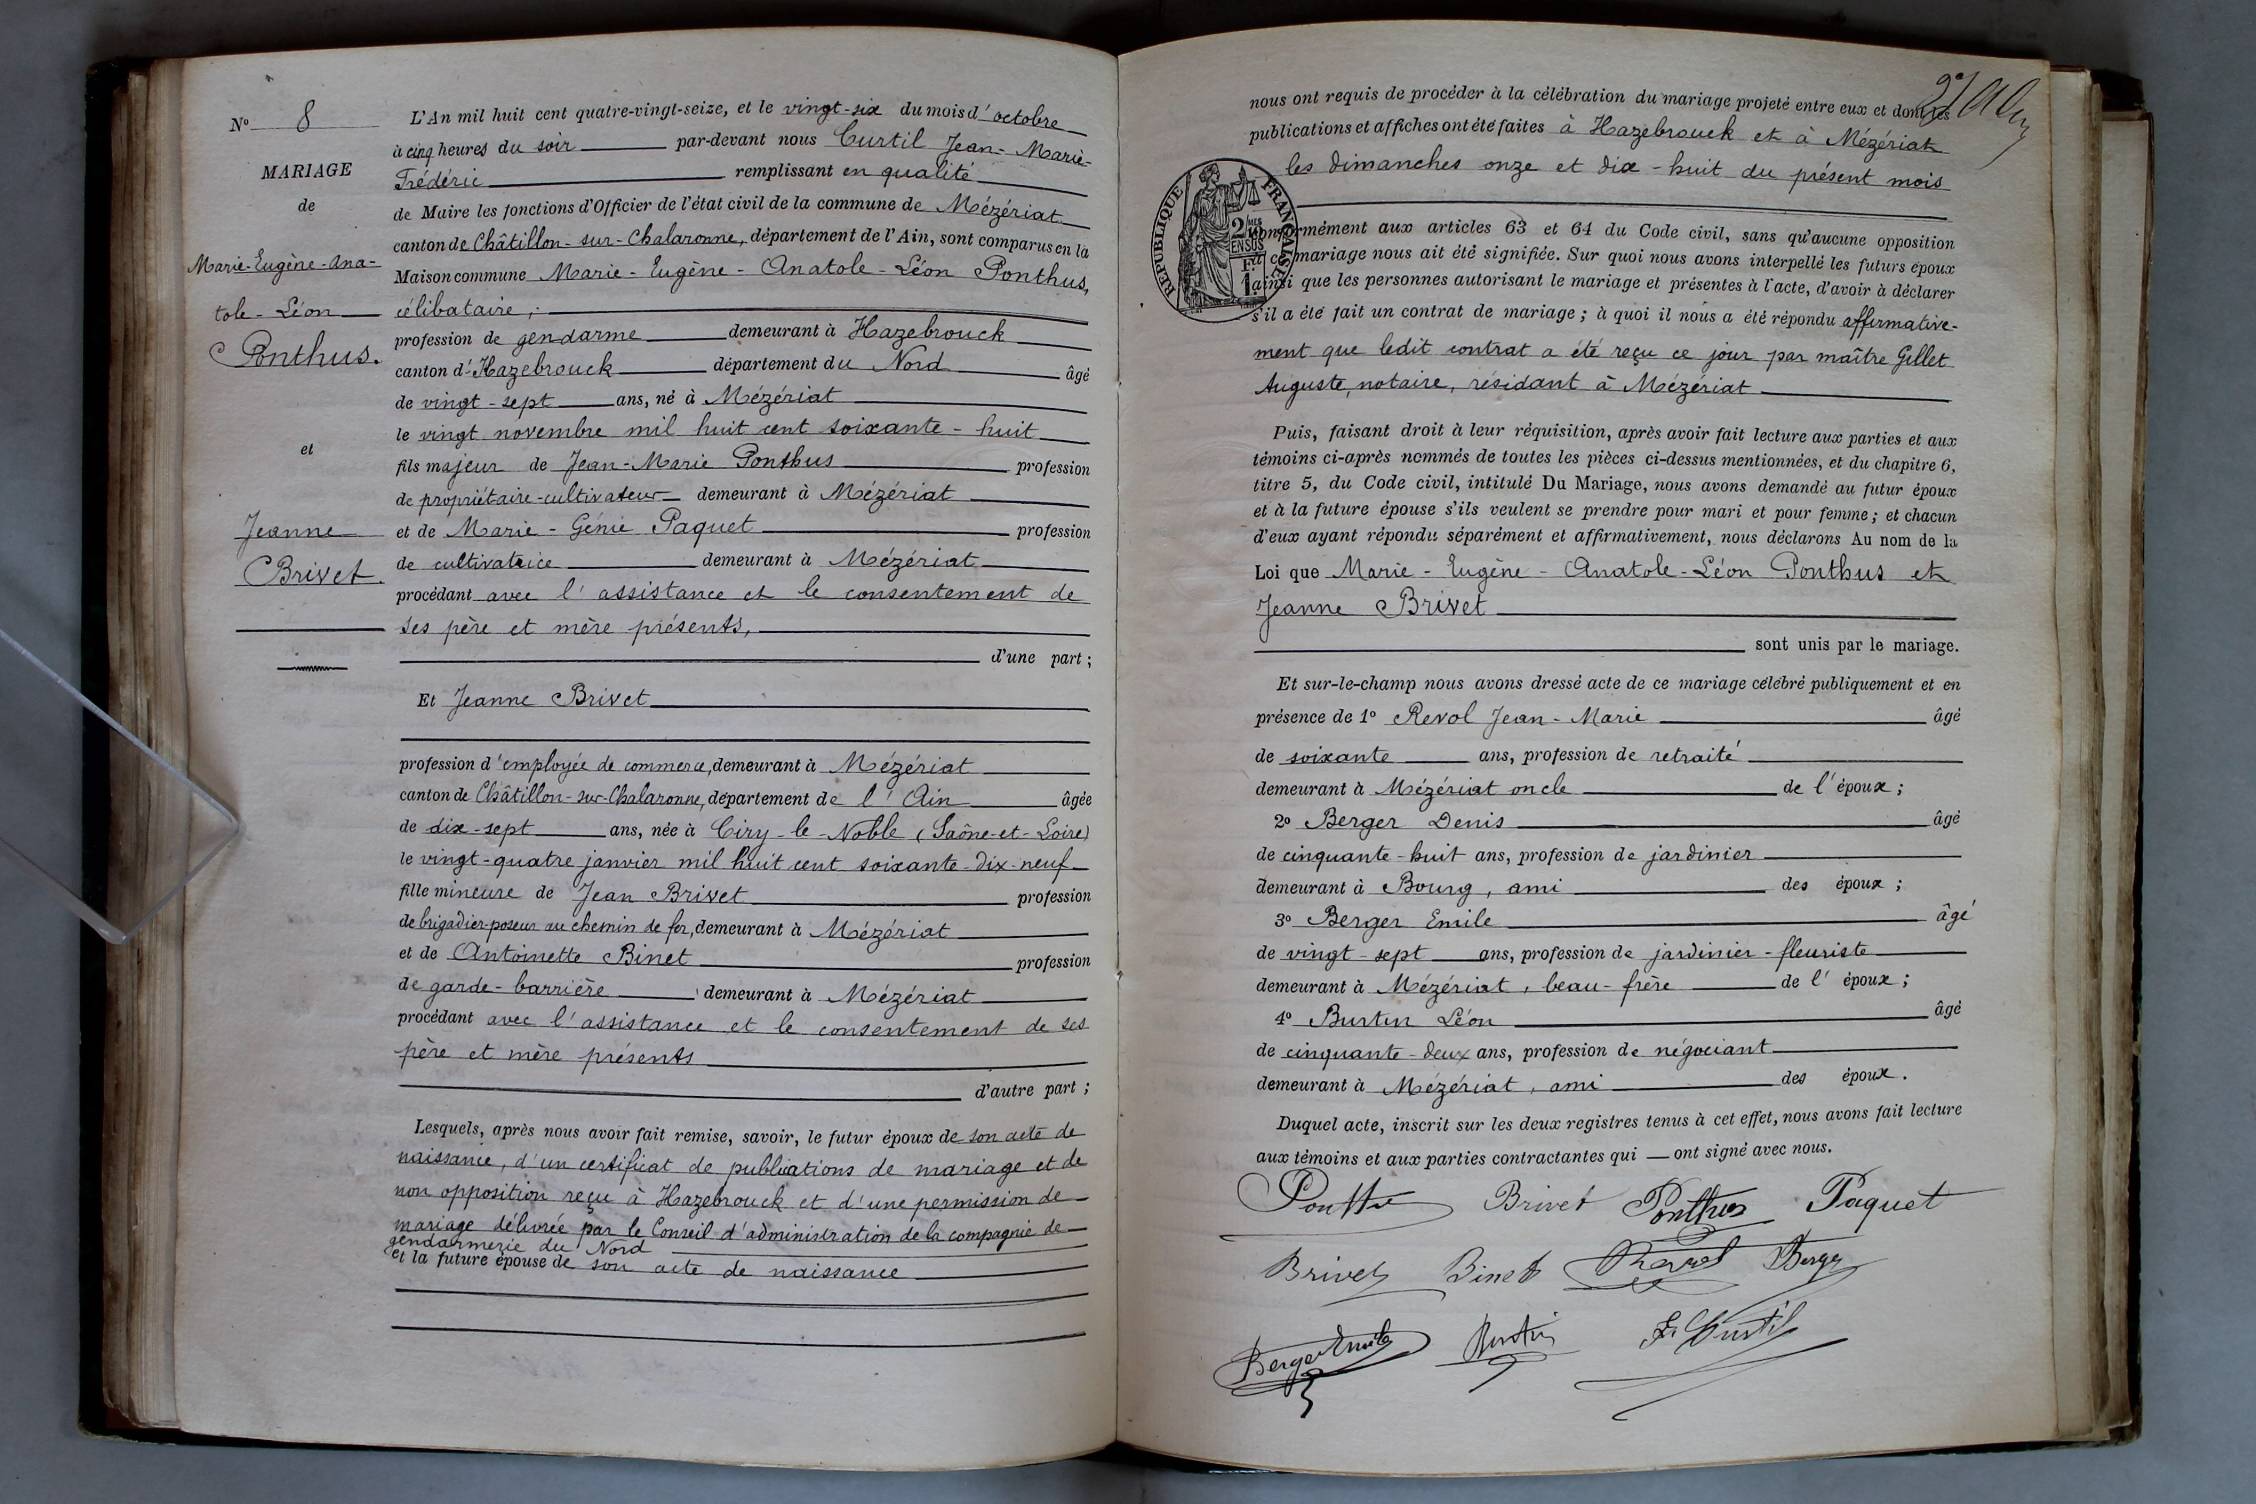 N° 8
MARIAGE
de
Marie-Eugène-Ana-
tole-Léon
Ponthus.
et
Jeanne
Brivet.
L'An mil huit cent quatre-vingt-seize, et le vingt-six du mois d'octobre
à cinq heures du soir par-devant nous Curtil Jean-Marie-
Frédéric remplissant en qualité
de Maire les fonctions d'Officier de l'état civil de la commune de Mézériat
canton de Châtillon-sur-Chalaronne, département de l'Ain, sont comparus en la
Maison commune Marie-Eugène-Anatole-Léon Ponthus,
célibataire,
profession de gendarme demeurant à Hazebrouck
canton d'Hazebrouck département du Nord âgé
de vingt-sept ans, né à Mézériat
le vingt novembre mil huit cent soixante-huit
fils majeur de Jean-Marie Ponthus profession
de propriétaire-cultivateur demeurant à Mézériat
et de Marie-Génie Paquet profession
de cultivatrice demeurant à Mézériat
procédant avec l'assistance et le consentement de
ses père et mère présents,
d'une part ;
Et Jeanne Brivet
profession d'employée de commerce, demeurant à Mézériat
canton de Châtillon-sur-Chalaronne, département de l'Ain âgée
de dix-sept ans, née à Ciry-le-Noble (Saône-et-Loire)
le vingt-quatre janvier mil huit cent soixante-dix-neuf
fille mineure de Jean Brivet profession
de brigadier-poseur au chemin de fer, demeurant à Mézériat
et de Antoinette Binet profession
de garde-barrière demeurant à Mézériat
procédant avec l'assistance et le consentement de ses
père et mère présents
d'autre part ;
Lesquels, après nous avoir fait remise, savoir, le futur époux de son acte de
naissance, d'un certificat de publications de mariage et de
non opposition reçu à Hazebrouck et d'une permission de
mariage délivrée par le Conseil d'administration de la compagnie de
gendarmerie du Nord
et la future épouse de son acte de naissance
nous ont requis de procéder à la célébration du mariage projeté entre eux et dont les
publications et affiches ont été faites à Hazebrouck et à Mézériat
les dimanches onze et dix-huit du présent mois
RÉPUBLIQUE FRANÇAISE
2/10MES
EN SUS
1F.
conformément aux articles 63 et 64 du Code civil, sans qu'aucune opposition
à ce mariage nous ait été signifiée. Sur quoi nous avons interpellé les futurs époux
ainsi que les personnes autorisant le mariage et présentes à l'acte, d'avoir à déclarer
s'il a été fait un contrat de mariage ; à quoi il nous a été répondu affirmative-
ment que ledit contrat a été reçu ce jour par maître Gillet
Auguste, notaire, résidant à Mézériat
Puis, faisant droit à leur réquisition, après avoir fait lecture aux parties et aux
témoins ci-après nommés de toutes les pièces ci-dessus mentionnées, et du chapitre 6,
titre 5, du Code civil, intitulé Du Mariage, nous avons demandé au futur époux
et à la future épouse s'ils veulent se prendre pour mari et pour femme ; et chacun
d'eux ayant répondu séparément et affirmativement, nous déclarons Au nom de la
Loi que Marie-Eugène-Anatole-Léon Ponthus et
Jeanne Brivet
sont unis par le mariage.
Et sur-le-champ nous avons dressé acte de ce mariage célébré publiquement et en
présence de 1° Revol Jean-Marie âgé
de soixante ans, profession de retraité
demeurant à Mézériat oncle de l'époux ;
2° Berger Denis âgé
de cinquante-huit ans, profession de jardinier
demeurant à Bourg, ami des époux ;
3° Berger Emile âgé
de vingt-sept ans, profession de jardinier-fleuriste
demeurant à Mézériat, beau-frère de l'époux ;
4° Burtin Léon âgé
de cinquante-deux ans, profession de négociant
demeurant à Mézériat, ami des époux.
Duquel acte, inscrit sur les deux registres tenus à cet effet, nous avons fait lecture
aux témoins et aux parties contractantes qui — ont signé avec nous.
Brivet Ponthus Paquet
Brivet Binet Revol Berger
Berger Emile Burtin F. Curtil